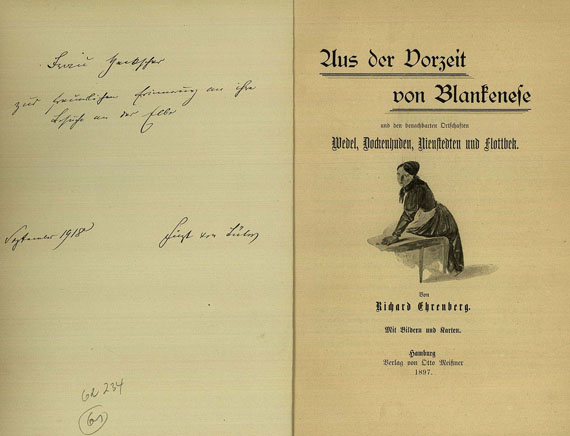 Frau
zur freundlichen Erinnerung an ihre
Besuche an der Elbe
September 1918
Fürst von Bülow
62 234
Aus der Vorzeit
von Blankenese
und den benachbarten Ortschaften
Wedel, Dockenhuden, Nienstedten und Flottbek.
Von
Richard Ehrenberg.
Mit Bildern und Karten.
Hamburg
Verlag von Otto Meißner
1897.